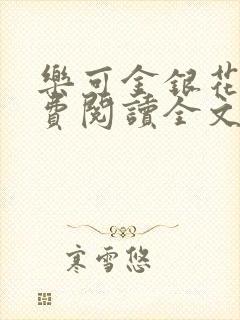 樂可金銀花
費閱讀全文
寒雪悠